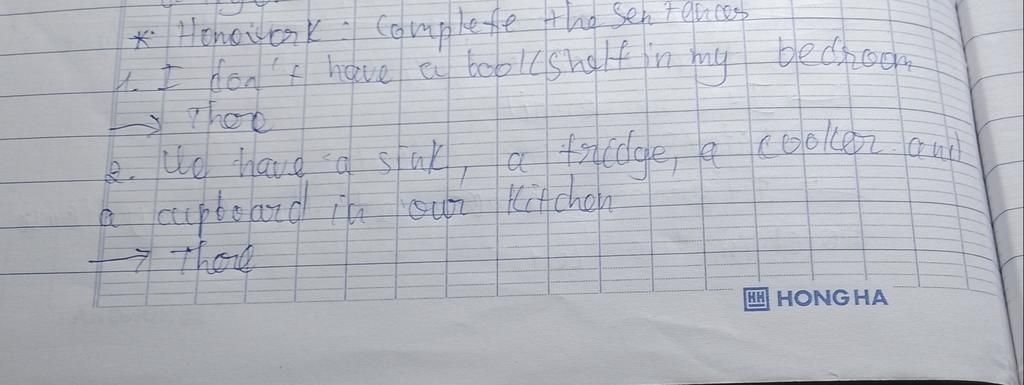 * Homework : Complete the sentances
1. I don't have a bookshelf in my bedroom
→ There
2. We have a sink, a fridge, a cooker and
a cupboard in our kitchen
→ There
HH HONG HA